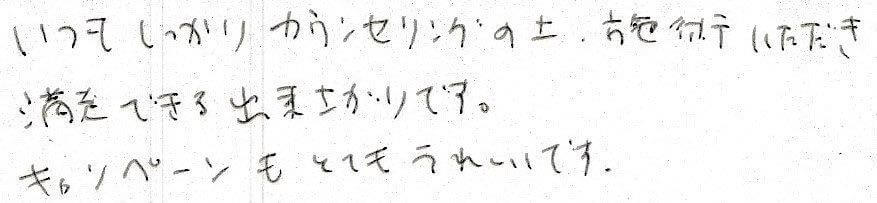 いつもしっかりカウンセリングの上、施術いただき
満足できる出来上がりです。
キャンペーンもとてもうれしいです。